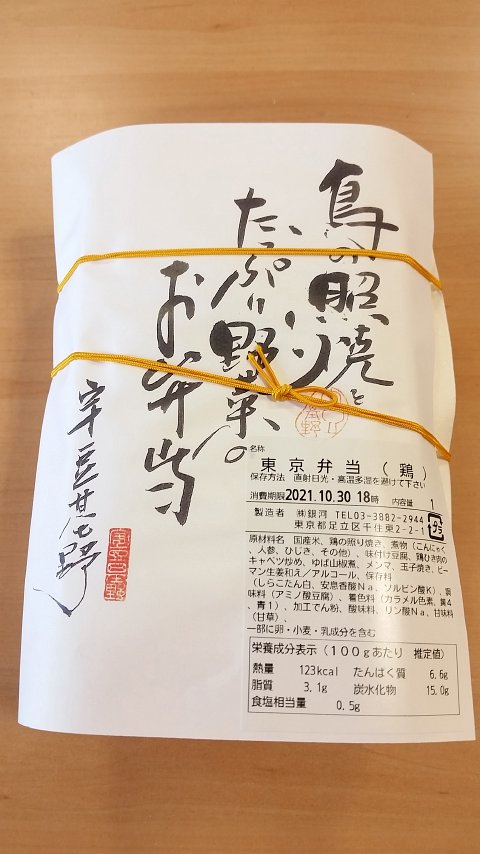 鳥の照焼と
たっぷり野菜の
お弁当
宇豆基野
名称
東京弁当（鶏）
保存方法 直射日光・高温多湿を避けて下さい
消費期限2021.10.30 18時 内容量 1
製造者 ㈱銀河 TEL03-3882-2944
東京都足立区千住東2-2-1
プラ
原材料名 国産米、鶏の照り焼き、煮物（こんにゃく
、人参、ひじき、その他）、味付け豆腐、鶏ひき肉の
キャベツ炒め、ゆば山椒煮、メンマ、玉子焼き、ピー
マン生姜和え／アルコール、保存料
（しらこたん白、安息香酸Ｎａ、ソルビン酸Ｋ）、調
味料（アミノ酸豆腐）、着色料（カラメル色素、黄4
、青1）、加工でん粉、酸味料、リン酸Ｎａ、甘味料
（甘草）、
一部に卵・小麦・乳成分を含む
栄養成分表示（100gあたり 推定値）
熱量 123kcal たんぱく質 6.6g
脂質 3.1g 炭水化物 15.0g
食塩相当量 0.5g